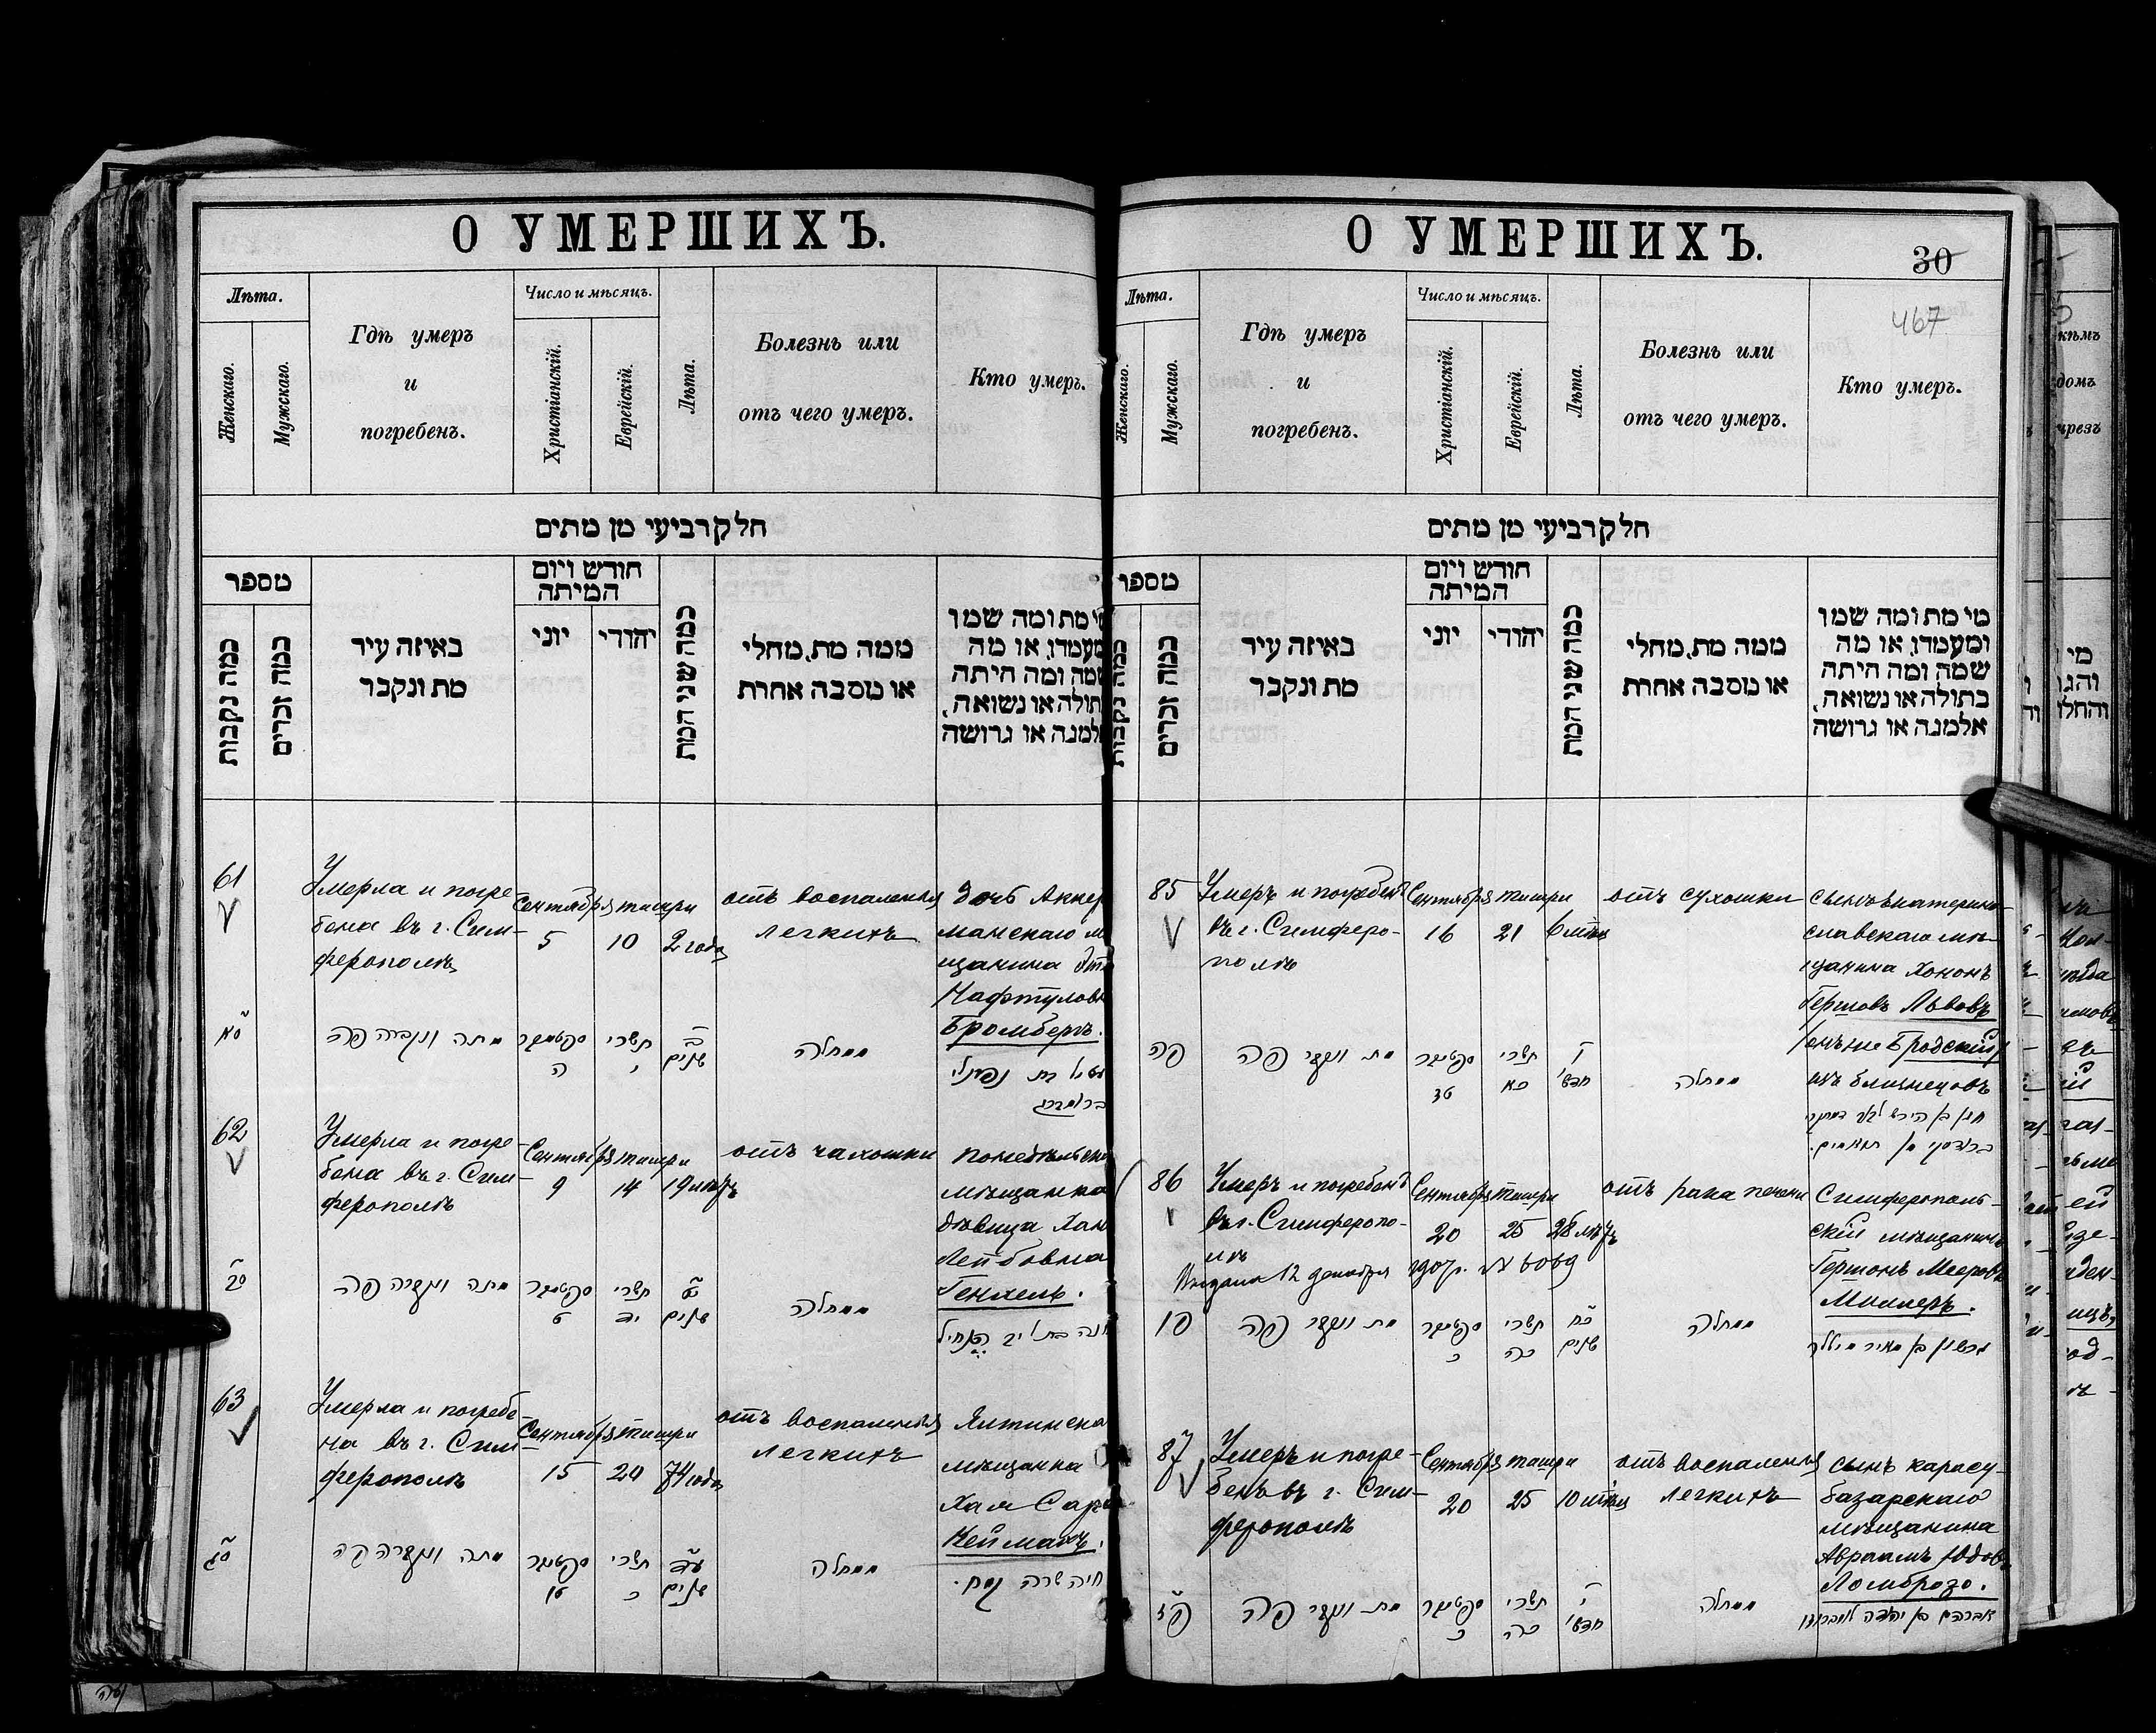 О УМЕРШИХЪ.
Лѣта.
Женскаго.
Мужскаго.
Гдѣ умеръ
и
погребенъ.
Число и мѣсяцъ.
Христіанскій.
Еврейскій.
Лѣта.
Болезнь или
отъ чего умеръ.
Кто умеръ.
חלק רביעי מן מתים
מספר
כמה נקבות
כמה זכרים
באיזה עיר
מת ונקבר
חודש ויום
המיתה
יוני
יהודי
כמה שני המת
ממה מת, מחלי
או מסבה אחרת
מי מת ומה שמו
ומעמדו, או מה
שמה ומה היתה
בתולה או נשואה,
אלמנה או גרושה
61
Умерла и погре-
бена въ г. Сим-
ферополѣ
Сентября
5
тишри
10
2 года
отъ воспаленія
легкихъ
Дочь Аккер
манскаго м
щанина
Нафтулов
Бромбергъ.
סא
מתה ונקברה פה
ספטמבר
ה
תשרי
י
ב
שנים
ממחלה
בת נפתלי
ברומברג
62
Умерла и погре-
бена въ г. Сим-
ферополѣ
Сентября
9
тишри
14
19 лѣтъ
отъ чахотки
мѣщанка
дѣвица Хан
Лейбовна
Генхель.
סב
מתה ונקברה פה
ספטמבר
ט
תשרי
יד
יט
שנים
ממחלה
חנה בת ליב
63
Умерла и погребе-
на въ г. Сим-
ферополѣ
Сентября
15
тишри
20
74 года
отъ воспаленія
легкихъ
Ялтинска
мѣщанка
Хая Сара
Нейманъ.
סג
מתה ונקברה פה
ספטמבר
טו
תשרי
כ
עד
שנים
ממחלה
חיה שרה
О УМЕРШИХЪ.
30
467
Лѣта.
Женскаго.
Мужскаго.
Гдѣ умеръ
и
погребенъ.
Число и мѣсяцъ.
Христіанскій.
Еврейскій.
Лѣта.
Болезнь или
отъ чего умеръ.
Кто умеръ.
חלק רביעי מן מתים
מספר
כמה נקבות
כמה זכרים
באיזה עיר
מת ונקבר
חודש ויום
המיתה
יוני
יהודי
כמה שני המת
ממה מת, מחלי
או מסבה אחרת
מי מת ומה שמו
ומעמדו, או מה
שמה ומה היתה
בתולה או נשואה,
אלמנה או גרושה
85
Умеръ и погребенъ
въ г. Симферо-
полѣ
Сентября
16
тишри
21
6 мѣс
отъ сухотки
сынъ екатерино-
славскаго мѣ-
щанина Хононъ
Гершовъ Львовъ
онъ же Бродскій
изъ близнецовъ
פה
מת ונקבר פה
ספטמבר
טז
תשרי
כא
ו
חדשי
ממחלה
חנן בן הירש
ברודסקי מן תאומים.
86
Умеръ и погребенъ
въ г. Симферопо-
лѣ
Сентября
20
тишри
25
28 лѣтъ
отъ рака печени
Симферополь-
скій мѣщанинъ
Гершонъ Мееровъ
Миллеръ.
Выдана 12 декабря 1907 г. № 6069
פו
מת ונקבר פה
ספטמבר
כ
תשרי
כה
כח
שנים
ממחלה
גרשון בן מאיר מיללר
87
Умеръ и погре-
бенъ въ г. Сим-
ферополѣ
Сентября
20
тишри
25
10 мѣс
отъ воспаленія
легкихъ
сынъ карасу-
базарскаго
мѣщанина
Авраамъ Юдовъ
Ломброзо.
פז
מת ונקבר פה
ספטמבר
כ
תשרי
כה
י
חדשי
ממחלה
אברהם בן יהודה לומברוזו